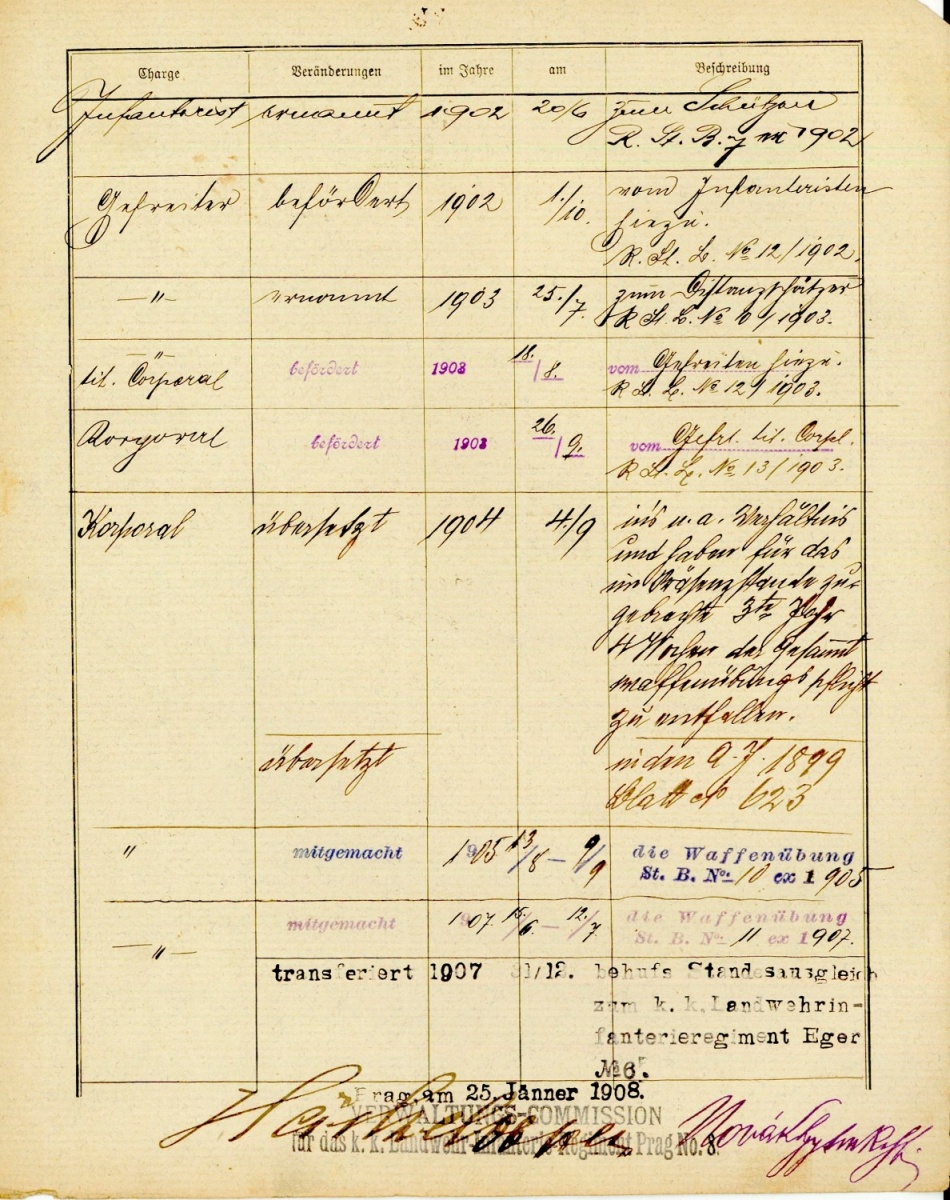 Charge Veränderungen im Jahre am Beschreibung
Infanterist ernannt 1902 20/6 zum Schützen
R. St. B. 7 ex 1902
Gefreiter befördert 1902 1./10. vom Infanteristen
hiezu.
R. St. B. No 12/1902.
—"— ernannt 1903 25./7. zum Distanzschätzer
R St. B. No 10/1903.
"
tit. Corporal befördert 1903 18./8. vom Gefreiten hiezu.
R St. B. No 12/1903.
Korporal befördert 1903 26./9. vom Gefrt. tit. Corpl.
R St. B. No 13/1903.
Korporal übersetzt 1904 4./9 ins n. a. Verhältnis
und haben für das
im Präsenzstande zu-
gebrachte 3te Jahr
4 Wochen der Gesammt
waffenübungspflicht
zu entfallen.
übersetzt in den A. J. 1899
Blatt No 623
" mitgemacht 1905 13/8 — 9/9 die Waffenübung
St. B. No. 10 ex 1905
—"— mitgemacht 1907. 15./6. — 12./7. die Waffenübung
St. B. No. 11 ex 1907.
transferiert 1907 31/12. behufs Standesausgleich
zum k. k. Landwehrin-
fanterieregiment Eger
No 6.
Prag, am 25. Jänner 1908.
VERWALTUNGS-COMMISSION
für das k. k. Landwehr-Infanterie-Regiment Prag No. 8.